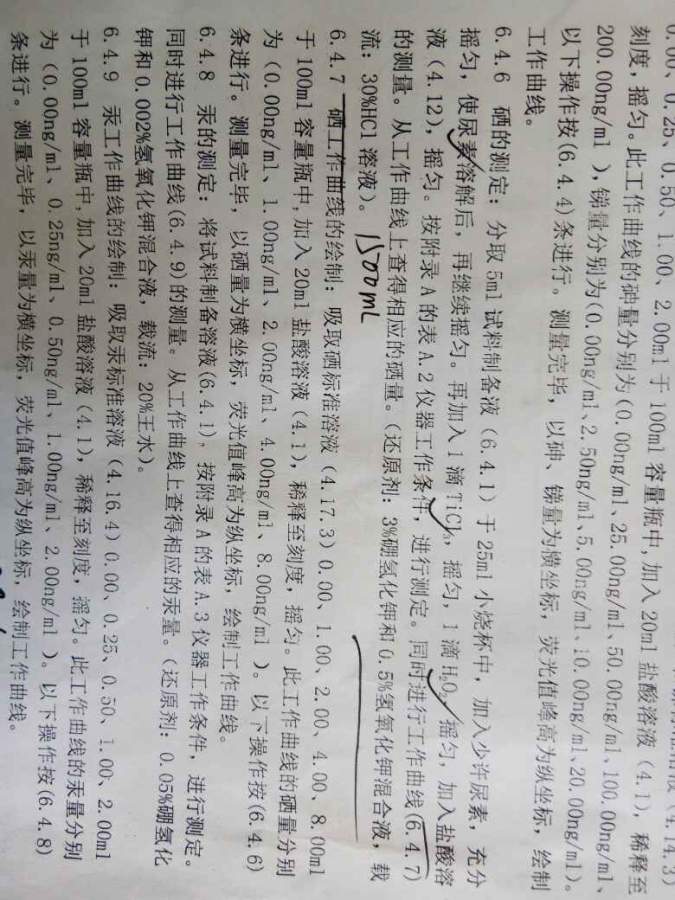 0.00、0.25、0.50、1.00、2.00ml 于 100ml 容量瓶中, 加入 20ml 盐酸溶液（4.1），稀释至
刻度，摇匀。此工作曲线的砷量分别为(0.00ng/ml、25.00ng/ml、50.00ng/ml、100.00ng/ml、
200.00ng/ml ),锑量分别为(0.00ng/ml、2.50ng/ml、5.00ng/ml、10.00ng/ml、20.00ng/ml)。
以下操作按(6.4.4)条进行。测量完毕，以砷、锑量为横坐标，荧光值峰高为纵坐标，绘制
工作曲线。
6.4.6 硒的测定：分取 5ml 试料制备液（6.4.1）于 25ml 小烧杯中，加入少许尿素，充分
摇匀，使尿素溶解后，再继续摇匀。再加入 1 滴 TiCl₃，摇匀，1 滴 H₂O₂ 摇匀，加入盐酸溶
液（4.12），摇匀。按附录 A 的表 A.2 仪器工作条件，进行测定。同时进行工作曲线(6.4.7)
的测量。从工作曲线上查得相应的硒量。(还原剂：3%硼氢化钾和 0.5%氢氧化钾混合液，载
流：30%HCl 溶液)。 1500mL
6.4.7 硒工作曲线的绘制：吸取硒标准溶液（4.17.3）0.00、1.00、2.00、4.00、8.00ml
于 100ml 容量瓶中, 加入 20ml 盐酸溶液（4.1），稀释至刻度，摇匀。此工作曲线的硒量分别
为（0.00ng/ml、1.00ng/ml、2.00ng/ml、4.00ng/ml、8.00ng/ml ）。以下操作按(6.4.6)
条进行。测量完毕，以硒量为横坐标，荧光值峰高为纵坐标，绘制工作曲线。
6.4.8 汞的测定：将试料制备溶液(6.4.1)，按附录 A 的表 A.3 仪器工作条件，进行测定。
同时进行工作曲线(6.4.9)的测量。从工作曲线上查得相应的汞量。(还原剂：0.05%硼氢化
钾和 0.002%氢氧化钾混合液，载流：20%王水)。
6.4.9 汞工作曲线的绘制：吸取汞标准溶液（4.16.4）0.00、0.25、0.50、1.00、2.00ml
于 100ml 容量瓶中, 加入 20ml 盐酸溶液（4.1），稀释至刻度，摇匀。此工作曲线的汞量分别
为（0.00ng/ml、0.25ng/ml、0.50ng/ml、1.00ng/ml、2.00ng/ml ）。以下操作按(6.4.8)
条进行。测量完毕，以汞量为横坐标，荧光值峰高为纵坐标，绘制工作曲线。